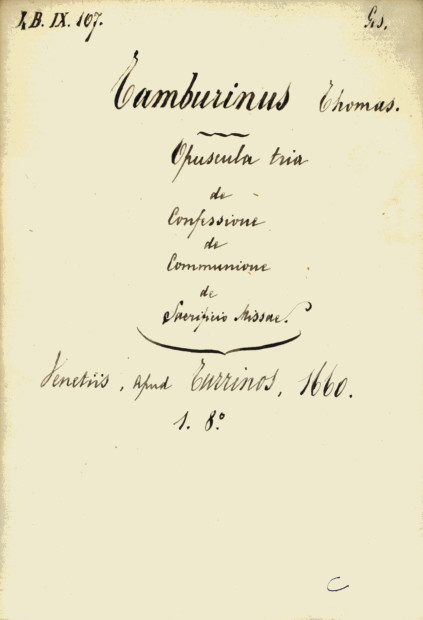 I, B. IX. 107. Gs.
Tamburinus Thomas.
Opuscula tria
de
Confessione
de
Communione
de
Sacrificio Missae.
Venetiis, apud Turrinos, 1660.
1. 8°
C